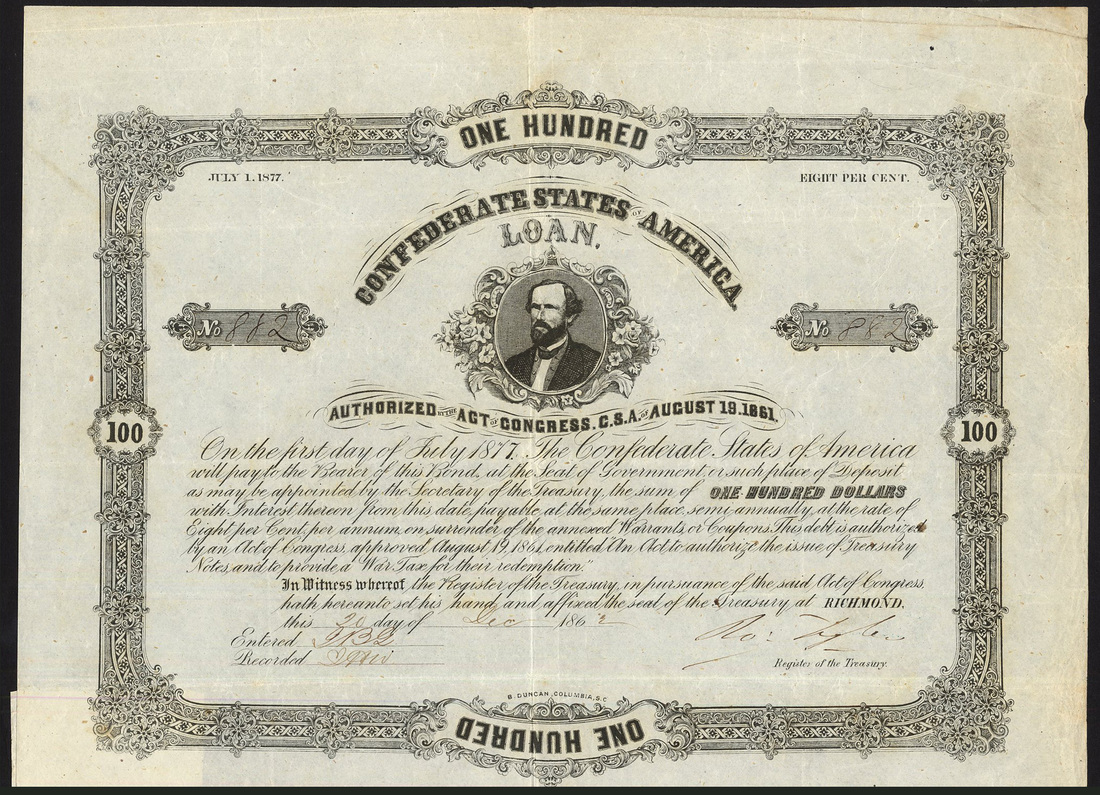 ONE HUNDRED
JULY 1. 1877.
EIGHT PER CENT.
CONFEDERATE STATES OF AMERICA
LOAN.
No 882
No 882
AUTHORIZED BY THE ACT OF CONGRESS. C.S.A. OF AUGUST 19. 1861.
100
100
On the first day of July 1877, The Confederate States of America
will pay to the Bearer of this Bond, at the Seat of Government, or such place of Deposit
as may be appointed by the Secretary of the Treasury, the sum of ONE HUNDRED DOLLARS
with Interest thereon from this date, payable at the same place, semi-annually, at the rate of
Eight per Cent. per annum, on surrender of the annexed Warrants, or Coupons. This debt is authorized
by an Act of Congress, approved August 19, 1861, entitled "An Act to authorize the issue of Treasury
Notes, and to provide a War Tax for their redemption."
In Witness whereof, the Register of the Treasury, in pursuance of the said Act of Congress,
hath hereunto set his hand, and affixed the seal of the Treasury, at RICHMOND,
this 20 day of Dec 1862
Entered
Recorded
Ro: Tyler
Register of the Treasury.
B. DUNCAN, COLUMBIA, S.C.
ONE HUNDRED